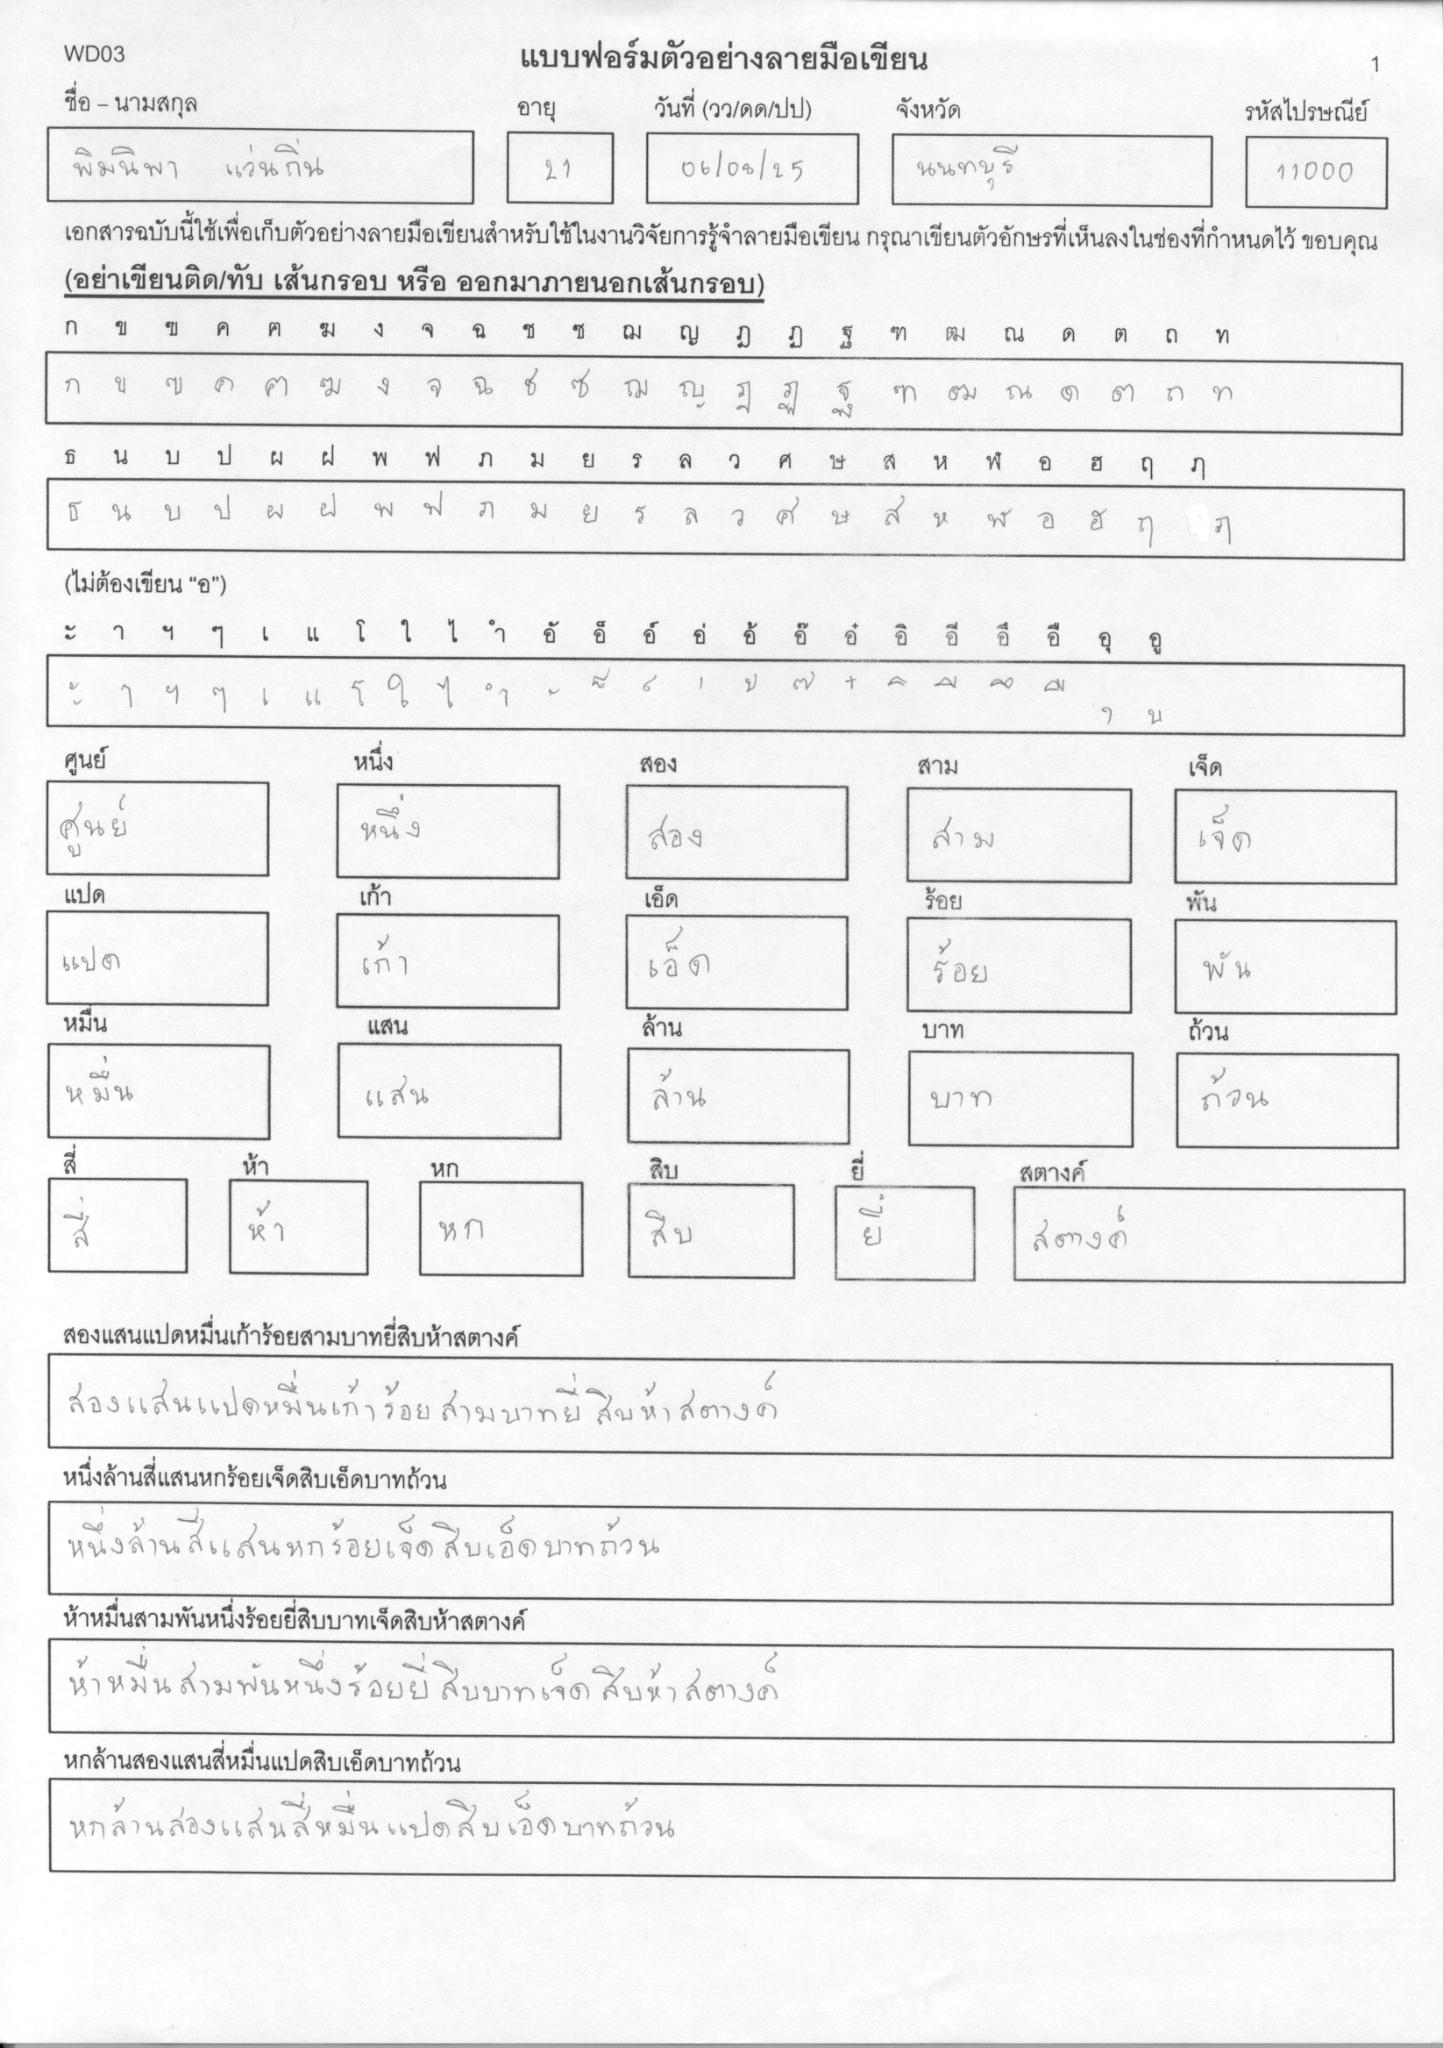 WD03 แบบฟอร์มตัวอย่างลายมือเขียน 1
ชื่อ – นามสกุล อายุ วันที่ (วว/ดด/ปป) จังหวัด รหัสไปรษณีย์
พิมนิพา แว่นถิ่น 21 06/08/25 นนทบุรี 11000
เอกสารฉบับนี้ใช้เพื่อเก็บตัวอย่างลายมือเขียนสำหรับใช้ในงานวิจัยการรู้จำลายมือเขียน กรุณาเขียนตัวอักษรที่เห็นลงในช่องที่กำหนดไว้ ขอบคุณ
(อย่าเขียนติด/ทับ เส้นกรอบ หรือ ออกมาภายนอกเส้นกรอบ)
ก ข ฃ ค ฅ ฆ ง จ ฉ ช ซ ฌ ญ ฎ ฏ ฐ ฑ ฒ ณ ด ต ถ ท
ก ข ฃ ค ฅ ฆ ง จ ฉ ช ซ ฌ ญ ฎ ฏ ฐ ฑ ฒ ณ ด ต ถ ท
ธ น บ ป ผ ฝ พ ฟ ภ ม ย ร ล ว ศ ษ ส ห ฬ อ ฮ ฤ ฦ
ธ น บ ป ผ ฝ พ ฟ ภ ม ย ร ล ว ศ ษ ส ห ฬ อ ฮ ฤ ฦ
(ไม่ต้องเขียน “อ”)
ะ า ฯ ๆ เ แ โ ใ ไ ำ อั อ็ อ์ อ่ อ้ อ๊ อ๋ อิ อี อึ อื อุ อู
ะ า ฯ ๆ เ แ โ ใ ไ ำ ั ็ ์ ่ ้ ๊ ๋ ิ ี ึ ื ุ ู
ศูนย์ หนึ่ง สอง สาม เจ็ด
ศูนย์ หนึ่ง สอง สาม เจ็ด
แปด เก้า เอ็ด ร้อย พัน
แปด เก้า เอ็ด ร้อย พัน
หมื่น แสน ล้าน บาท ถ้วน
หมื่น แสน ล้าน บาท ถ้วน
สี่ ห้า หก สิบ ยี่ สตางค์
สี่ ห้า หก สิบ ยี่ สตางค์
สองแสนแปดหมื่นเก้าร้อยสามบาทยี่สิบห้าสตางค์
สองแสนแปดหมื่นเก้าร้อยสามบาทยี่สิบห้าสตางค์
หนึ่งล้านสี่แสนหกร้อยเจ็ดสิบเอ็ดบาทถ้วน
หนึ่งล้านสี่แสนหกร้อยเจ็ดสิบเอ็ดบาทถ้วน
ห้าหมื่นสามพันหนึ่งร้อยยี่สิบบาทเจ็ดสิบห้าสตางค์
ห้าหมื่นสามพันหนึ่งร้อยยี่สิบบาทเจ็ดสิบห้าสตางค์
หกล้านสองแสนสี่หมื่นแปดสิบเอ็ดบาทถ้วน
หกล้านสองแสนสี่หมื่นแปดสิบเอ็ดบาทถ้วน